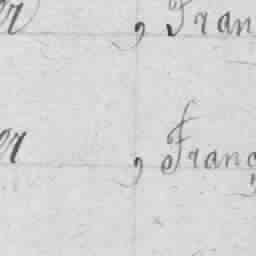 er , Fran
er , Franc